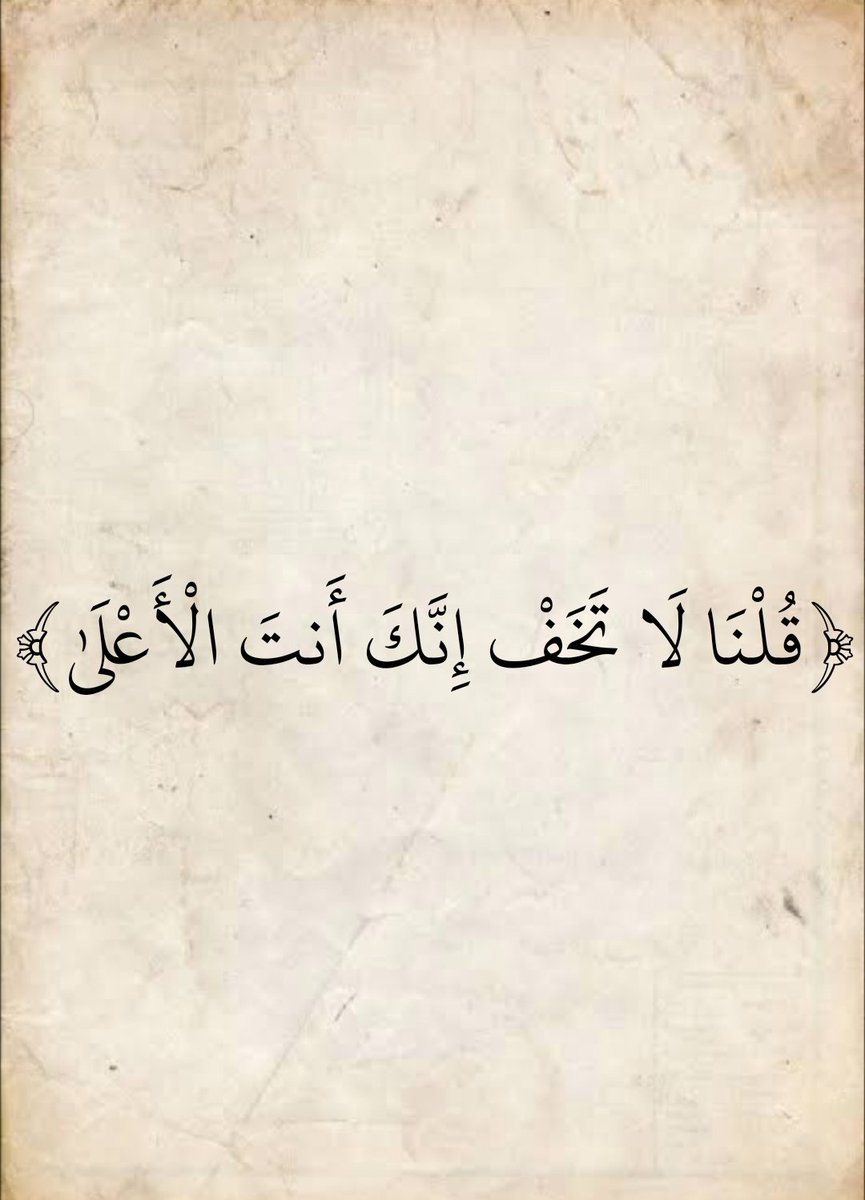 ﴿قُلْنَا لَا تَخَفْ إِنَّكَ أَنتَ الْأَعْلَىٰ﴾